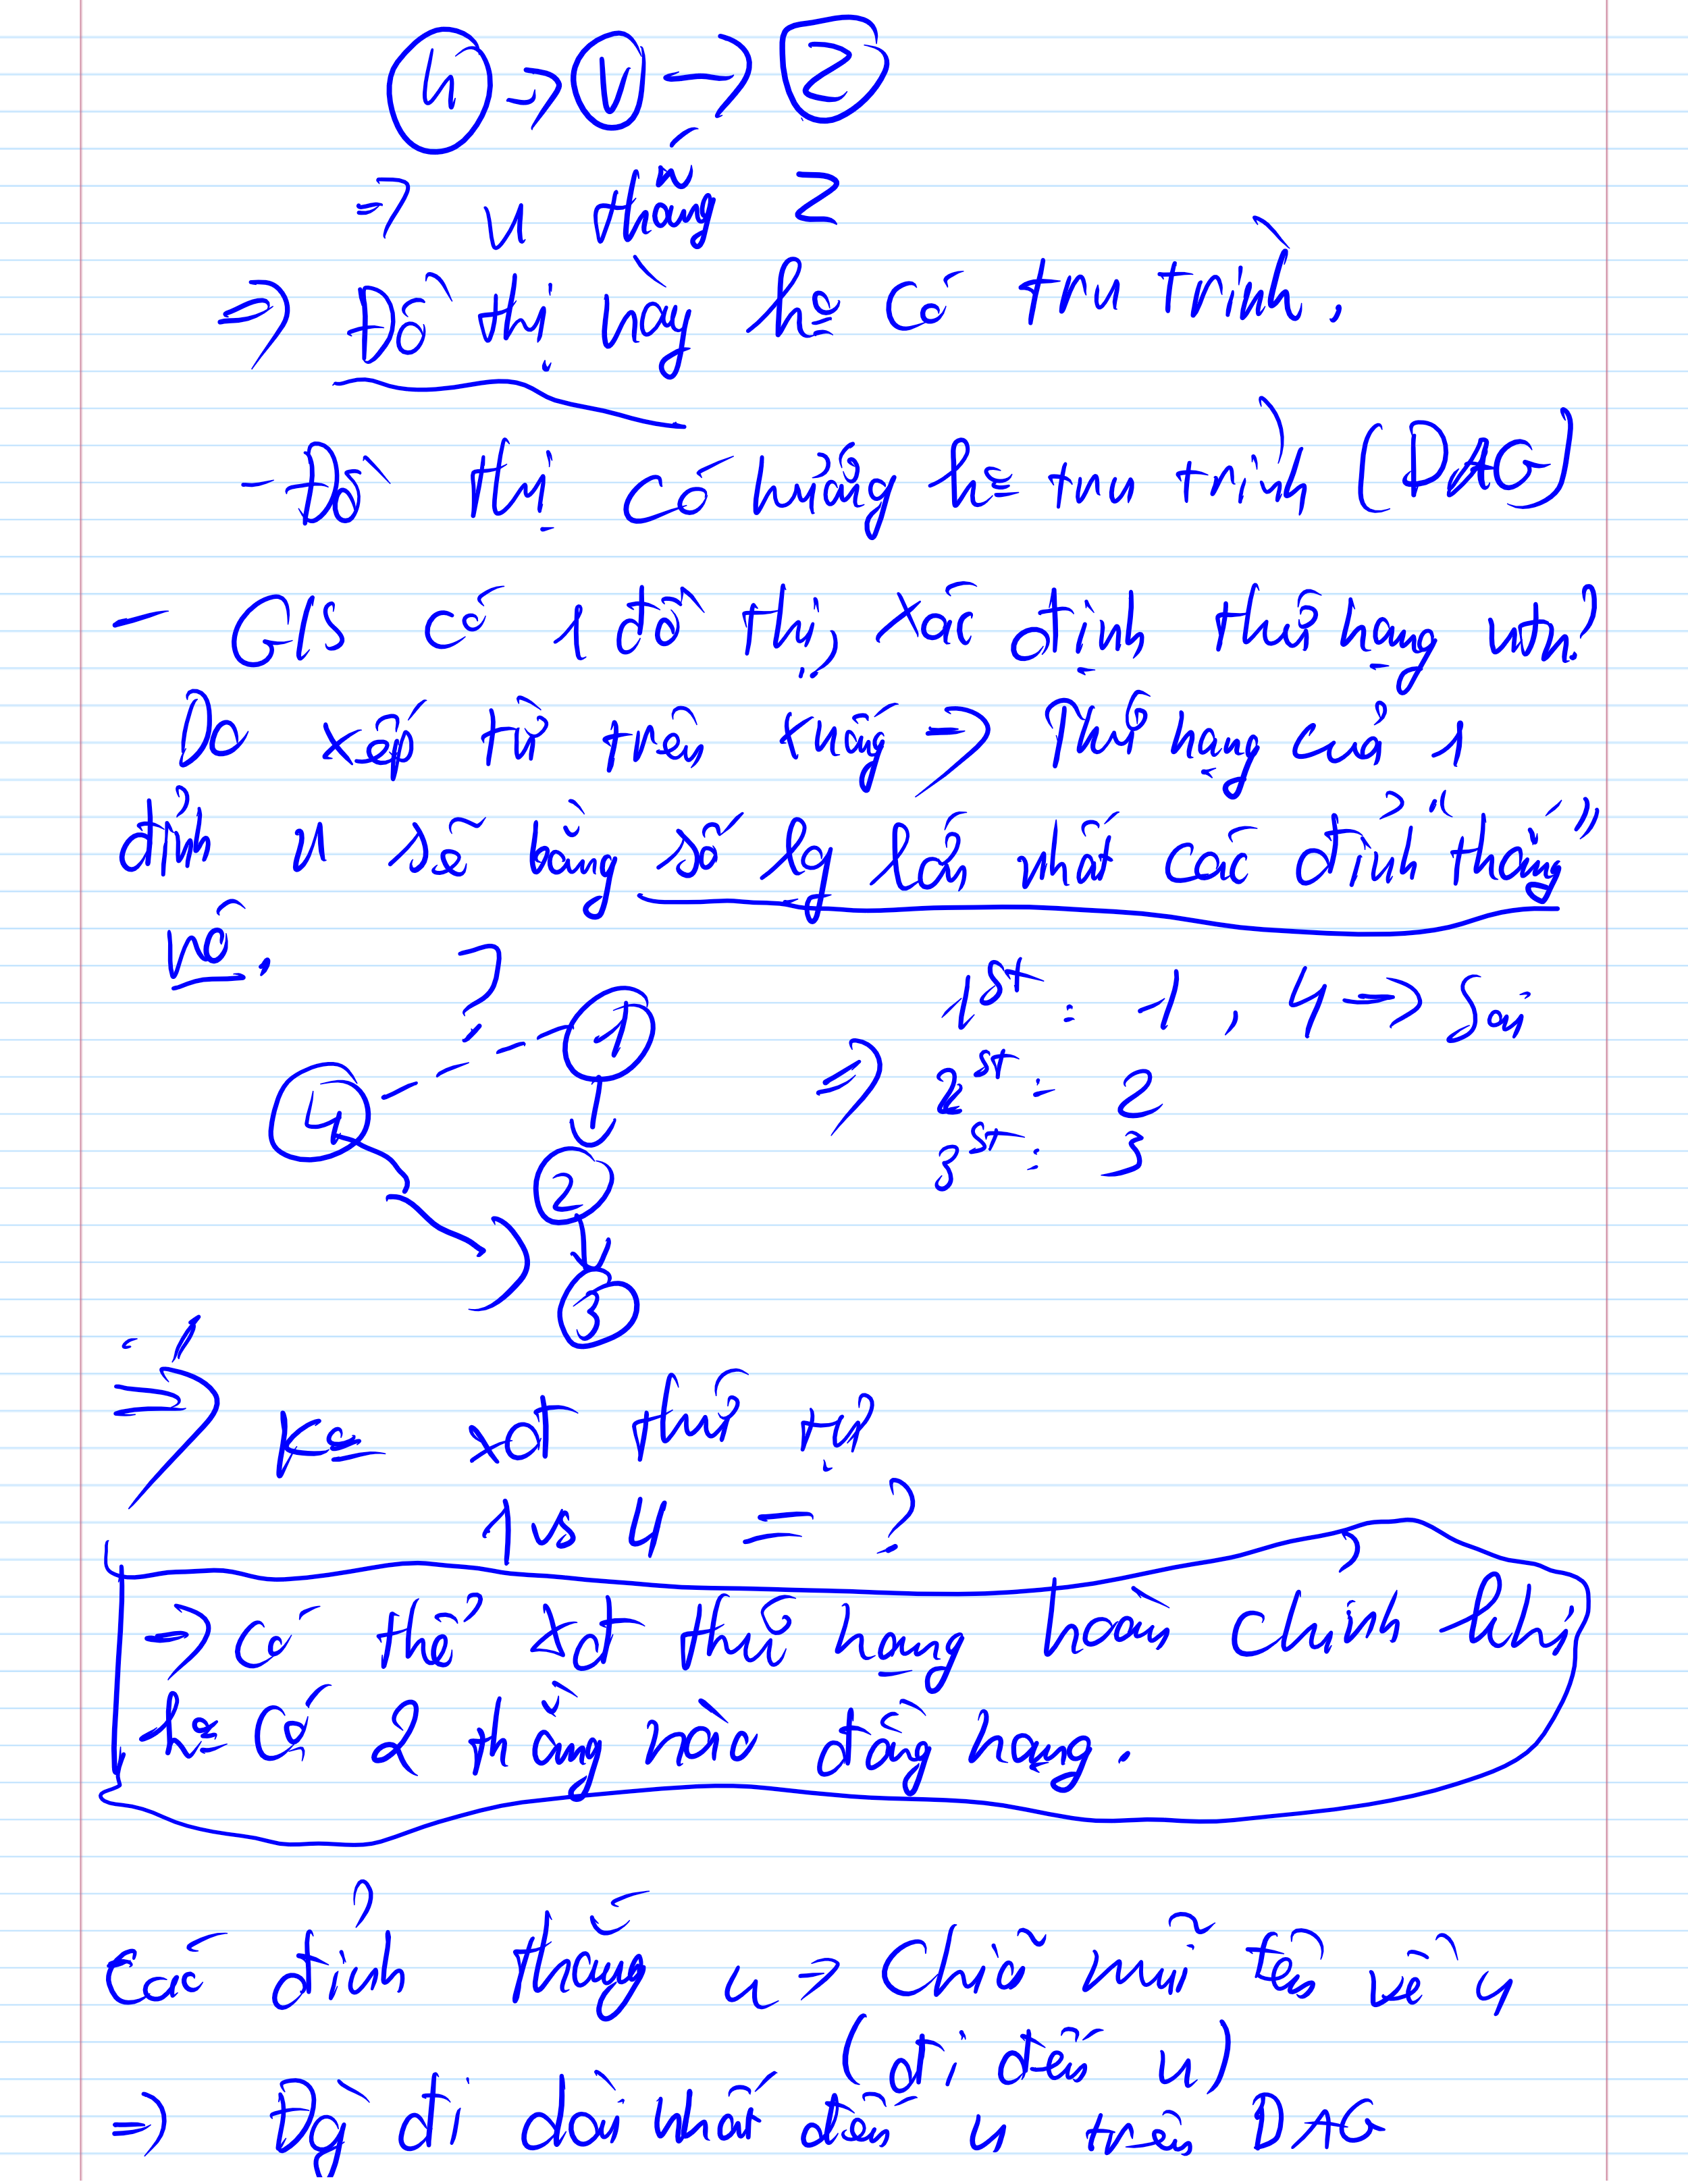 u → v → z
⇒ u thắng z
⇒ Đồ thị này ko có tru trình.
- Đồ thị có hướng ko tru trình (DAG)
- G/s có 1 đồ thị, xác định thứ hạng ntn?
Do xếp từ trên xuống ⇒ Thứ hạng của 1
đỉnh u sẽ bằng số lg lớn nhất các đỉnh "thắng"
nó.
? 1 1st: 1, 4 → Sai
4 ⇒ 2st: 2
2 3st: 3
3
⇒ Ko xđ thứ tự
1 vs 4 = ?
⇒ Có thể xđ thứ hạng hoàn chỉnh khi
ko có 2 thằng nào đồng hạng.
Các đỉnh thắng u → Chĩa mũi tên về u
(đi đến u)
⇒ Đg đi dài nhất đến u trên DAG